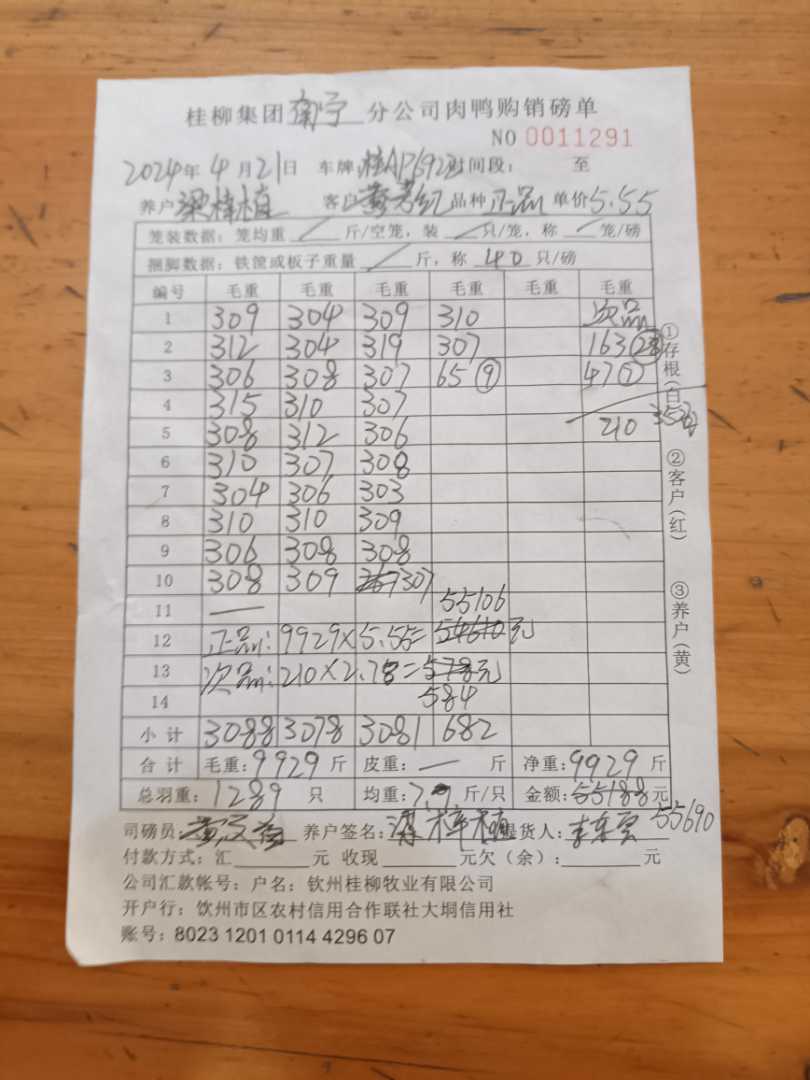 桂柳集团南宁分公司肉鸭购销磅单
NO 0011291
2024年4月21日 车牌:桂AP692 时间段: 至
养户梁梓植 客户黄孝纪 品种正品 单价5.55
笼装数据: 笼均重 / 斤/空笼, 装 / 只/笼, 称 / 笼/磅
捆脚数据: 铁筐或板子重量 / 斤, 称 40 只/磅
编号 毛重 毛重 毛重 毛重 毛重 毛重
1 309 304 309 310 次品
2 312 304 319 307 163 28
3 306 308 307 65 9 47 7
4 315 310 307
5 308 312 306 210 35只
6 310 307 308
7 304 306 303
8 310 310 309
9 306 308 308
10 308 309 307
11 — 55106
12 正品: 9929×5.55=54610元
13 次品: 210×2.78=578元
14 584
小计 3088 3078 3081 682
合计 毛重: 9929 斤 皮重: — 斤 净重: 9929 斤
总羽重: 1289 只 均重: 7.7 斤/只 金额: 55188元
55690
司磅员: 养户签名: 梁梓植 提货人:
付款方式: 汇 元 收现 元欠(余): 元
公司汇款帐号: 户名: 钦州桂柳牧业有限公司
开户行: 钦州市区农村信用合作联社大垌信用社
账号: 8023 1201 0114 4296 07
①存根(白)
②客户(红)
③养户(黄)